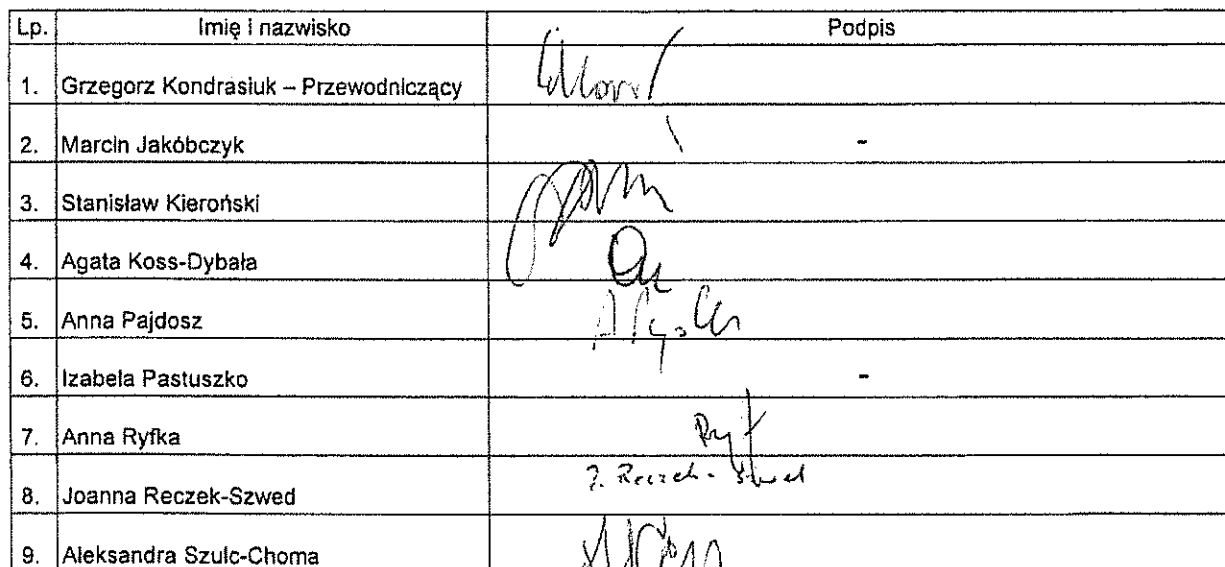 Lp. Imię i nazwisko Podpis
1. Grzegorz Kondrasiuk – Przewodniczący
2. Marcin Jakóbczyk -
3. Stanisław Kieroński
4. Agata Koss-Dybała
5. Anna Pajdosz
6. Izabela Pastuszko -
7. Anna Ryfka
J. Reczek-Szwed
8. Joanna Reczek-Szwed
9. Aleksandra Szulc-Choma